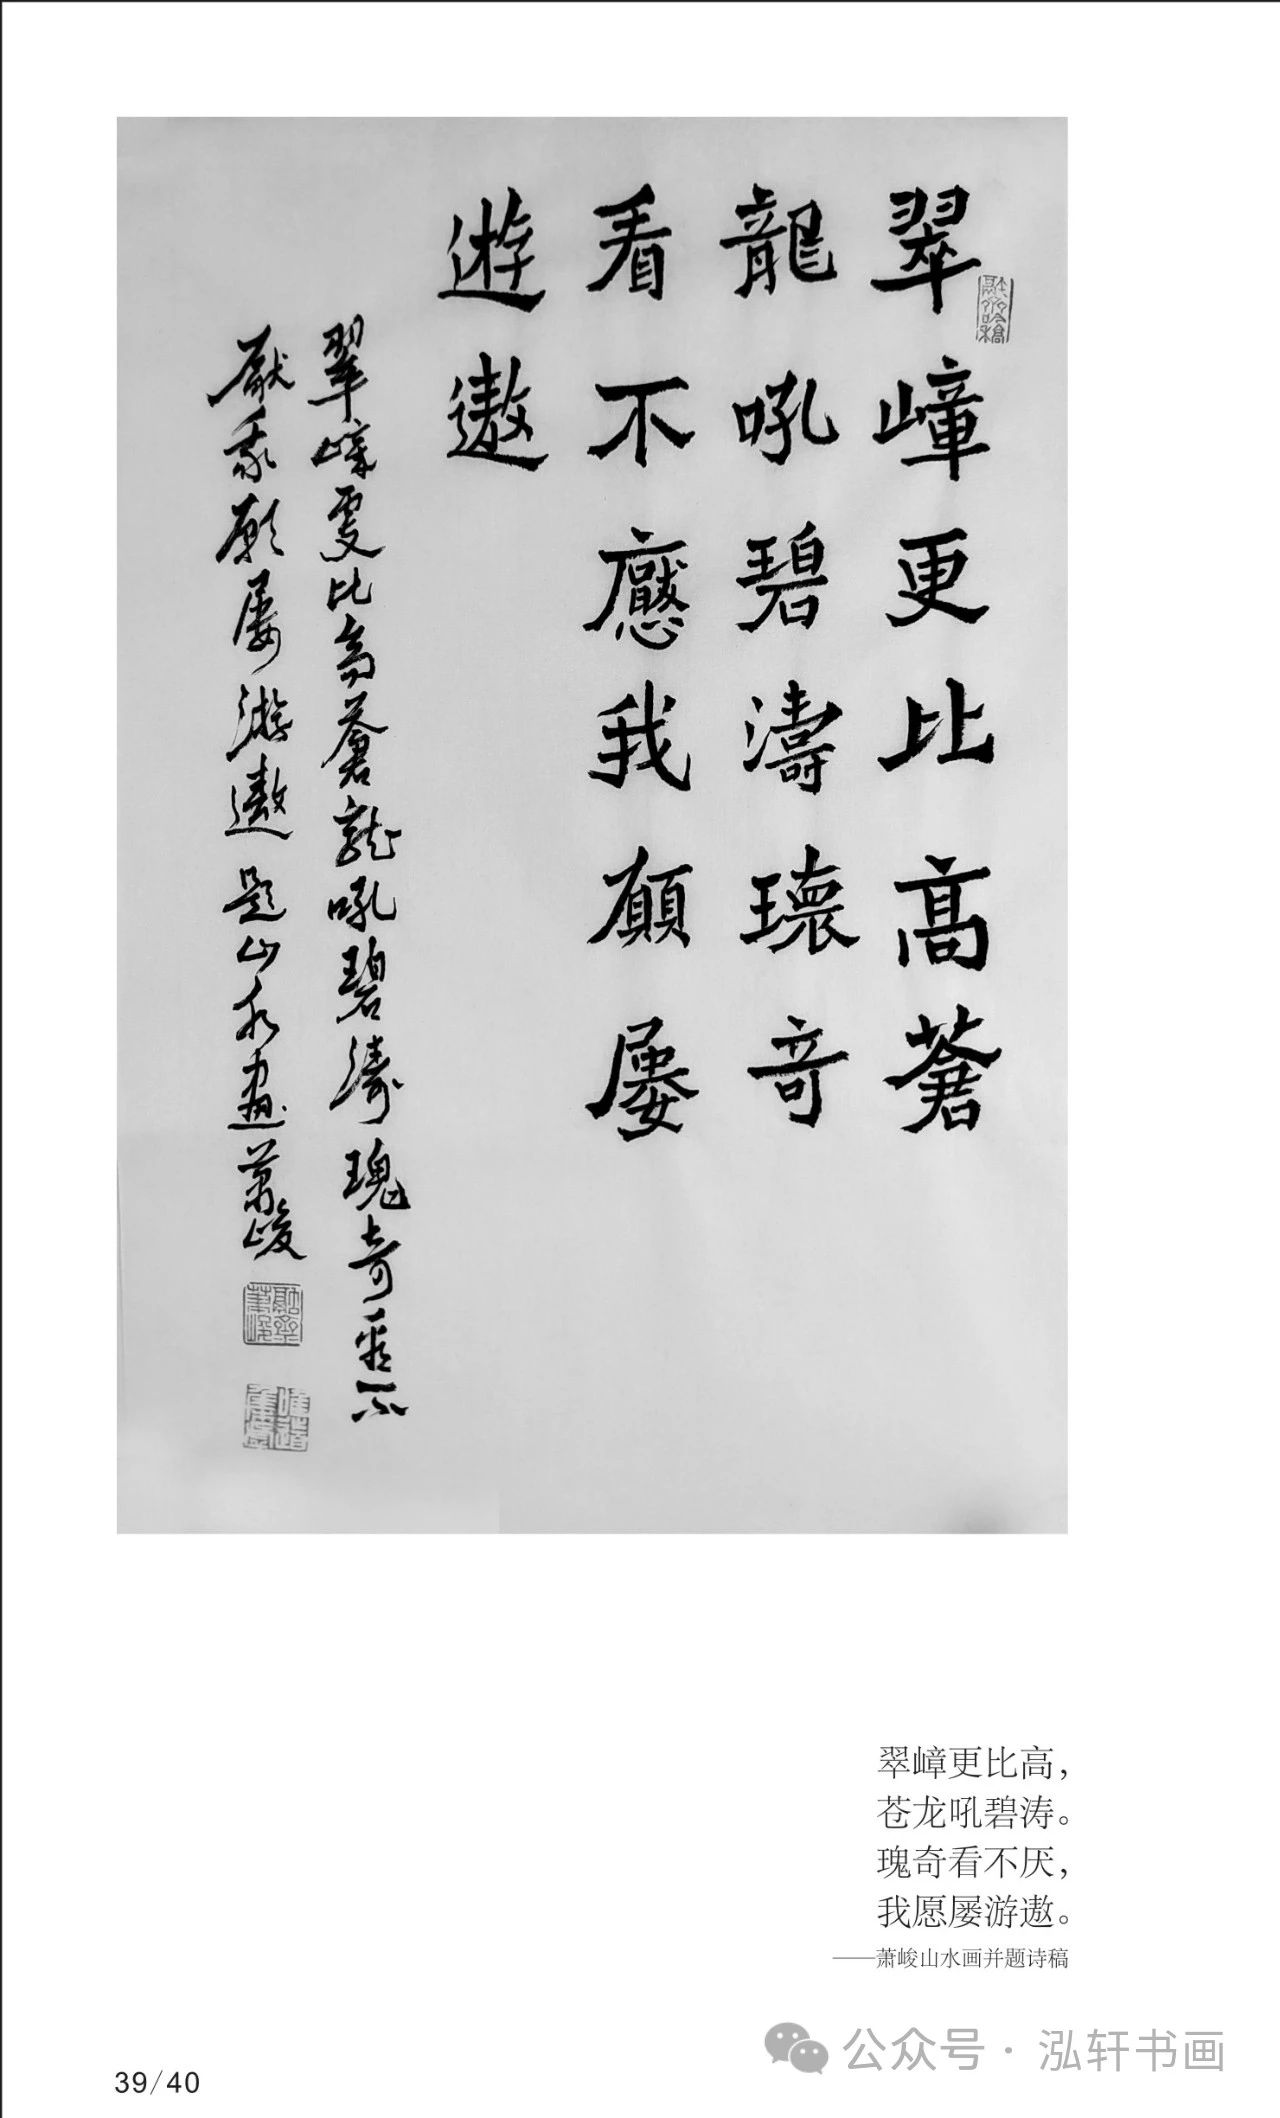 翠嶂更比高蒼
龍吼碧濤瓌奇
看不懕我願屢
遊遨
翠嶂更比高蒼龍吼碧濤瑰奇看不
厭我願屢游遨題山水畫蕭峻
翠嶂更比高，
苍龙吼碧涛。
瑰奇看不厌，
我愿屡游遨。
——萧峻山水画并题诗稿
公众号·泓轩书画
39/40